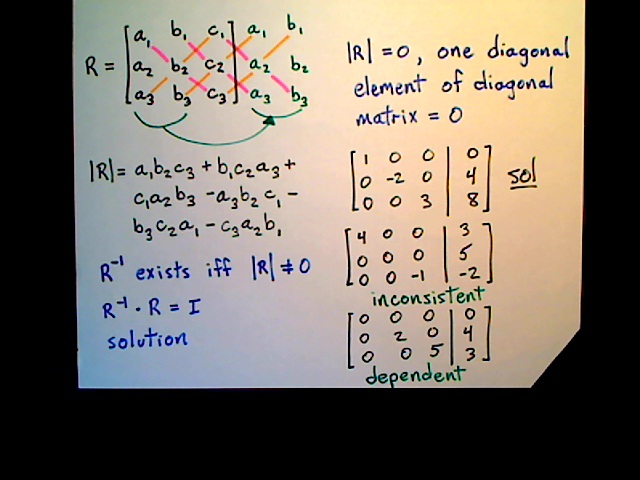 R = [a₁ b₁ c₁] a₁ b₁
[a₂ b₂ c₂] a₂ b₂
[a₃ b₃ c₃] a₃ b₃
|R| = a₁b₂c₃ + b₁c₂a₃ +
c₁a₂b₃ - a₃b₂c₁ -
b₃c₂a₁ - c₃a₂b₁
R⁻¹ exists iff |R| ≠ 0
R⁻¹ · R = I
solution
|R| = 0, one diagonal
element of diagonal
matrix = 0
[1 0 0 | 0]
[0 -2 0 | 4] sol
[0 0 3 | 8]
[4 0 0 | 3]
[0 0 0 | 5]
[0 0 -1 | -2]
inconsistent
[0 0 0 | 0]
[0 2 0 | 4]
[0 0 5 | 3]
dependent